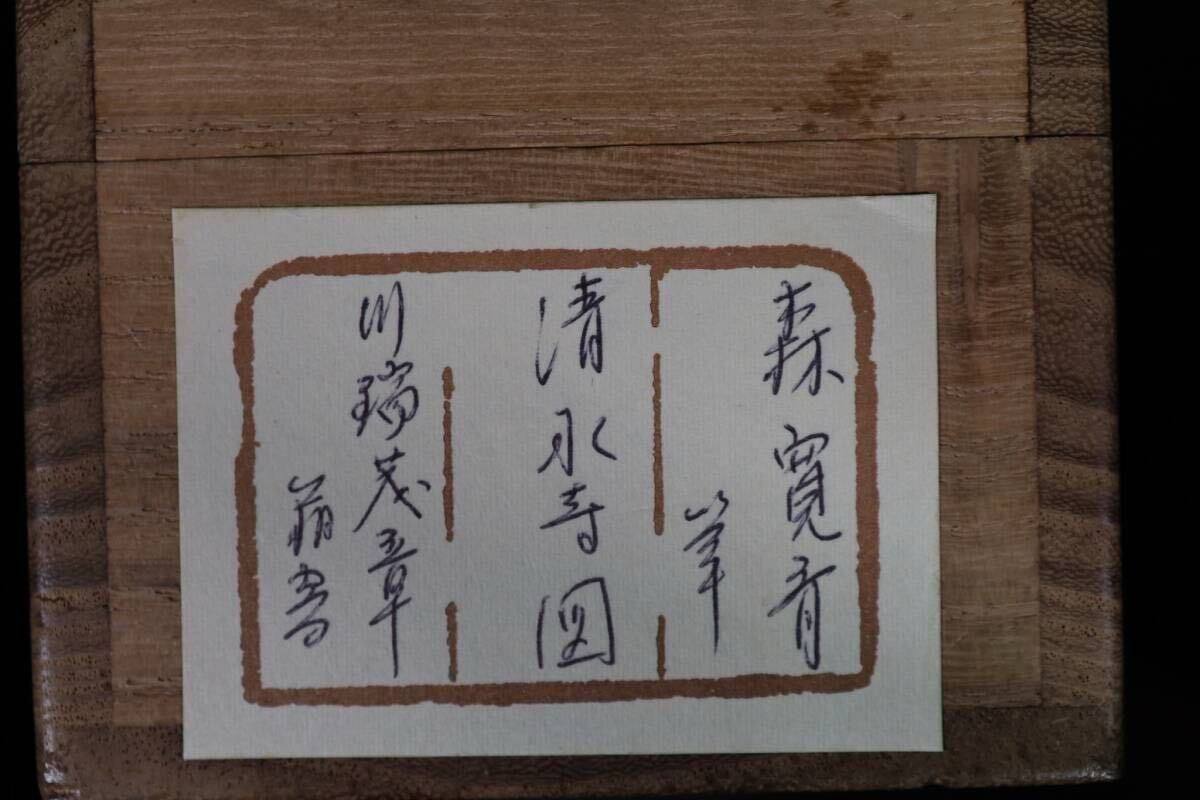 森寛斎
筆
清水寺図
川端茂章
箱書